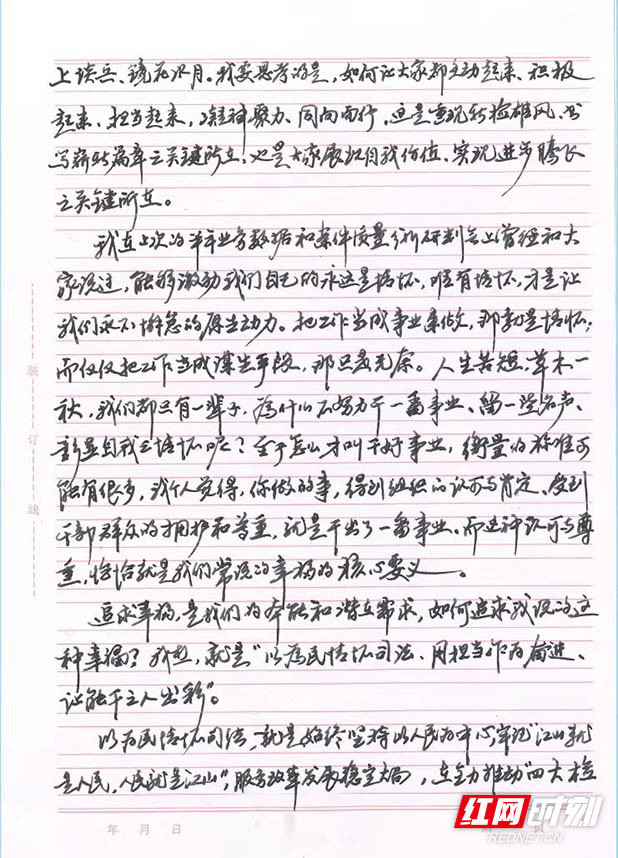 上谈兵、镜花水月。我要思考的是,如何让大家都主动起来、积极
起来、担当起来,凝神聚力、同向而行,这是重现新检雄风、书
写崭新篇章之关键所在,也是大家展现自我价值、实现进步腾飞
之关键所在。
我在上次的半年业务数据和案件质量分析研判会上曾经和大
家说过,能够激励我们自己的永远是情怀,唯有情怀,才是让
我们永不懈怠的原生动力。把工作当成事业来做,那就是情怀;
而仅仅把工作当成谋生手段,那只是无奈。人生苦短,草木一
秋,我们都只有一辈子,为什么不努力干一番事业、留一些名声、
彰显自我之情怀呢?至于怎么才叫干好事业,衡量的标准可
能有很多,我个人觉得,你做的事,得到组织的认可与肯定、受到
干部群众的拥护和尊重,就是干出了一番事业。而这种认可与尊
重,恰恰就是我们常说的幸福的核心要义。
追求幸福,是我们的本能和潜在需求,如何追求我说的这
种幸福?我想,就是“以为民情怀司法、用担当作为奋进、
让能干之人出彩”。
以为民情怀司法,就是始终坚持以人民为中心,牢记“江山就
是人民,人民就是江山”,服务改革发展稳定大局,在全力推动“四大检
装
订
线
年 月 日
红网时刻
REDNET.CN